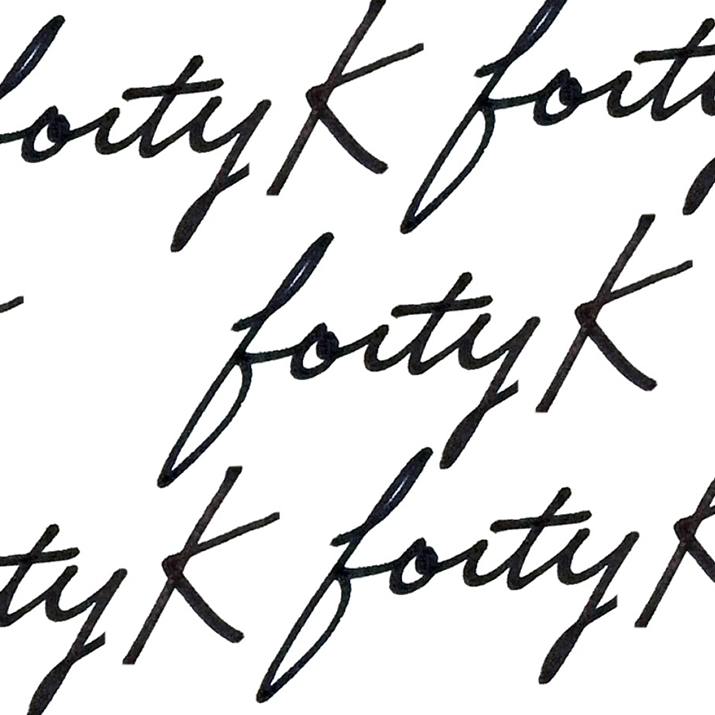 forty K forty
forty K
ty K forty K